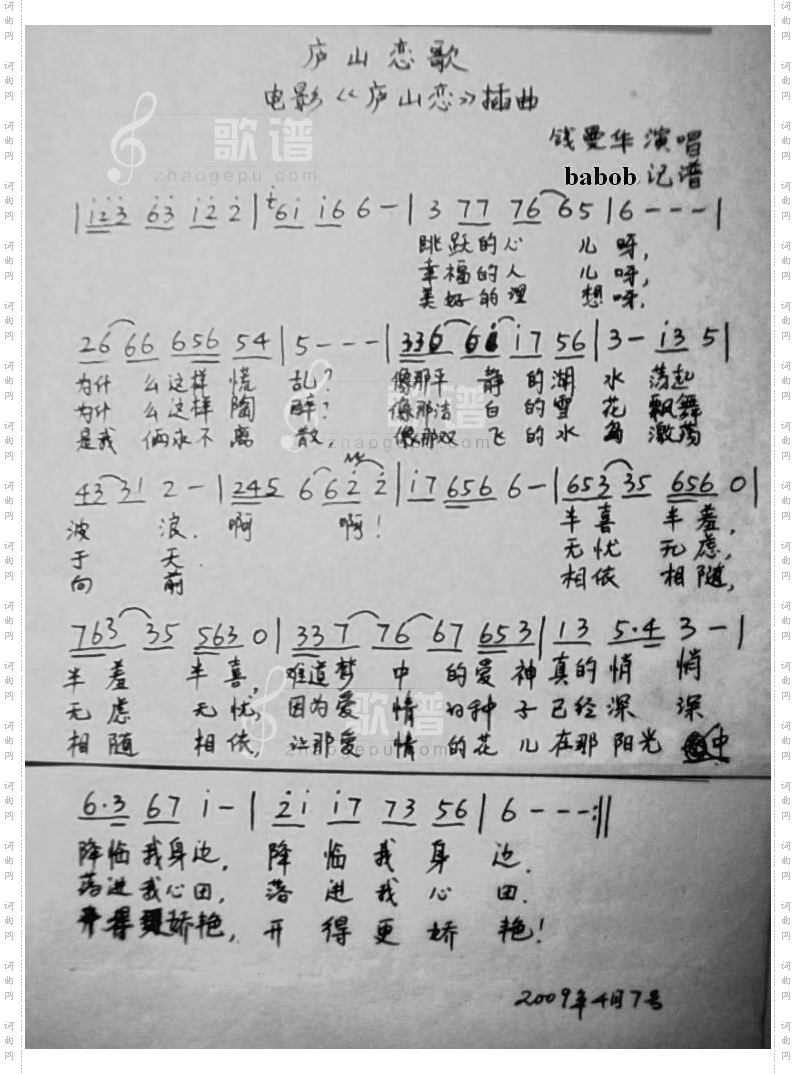 庐山恋歌
电影《庐山恋》插曲
钱曼华 演唱
babob 记谱
|i̇2̇3̇ 63̇ i̇2̇ 2̇|6i̇ i̇6 6-|3 77 76 65|6---|
跳跃的心 儿呀,
幸福的人 儿呀,
美好的理 想呀,
26 66 656 54|5---|336 6i̇ i̇7 56|3- i̇3 5|
为什么这样慌 乱? 像那平 静 的湖 水 荡起
为什么这样陶 醉? 像那洁 白 的雪 花 飘舞
是我俩永不离 散, 像那双 飞 的水 鸟 激荡
43 31 2-|245 6 62̇ 2̇|i̇7 656 6-|653 35 656 0|
波 浪. 啊 啊! 半喜 半羞,
于 天. 无忧 无虑,
向 前 相依 相随,
763 35 563 0|337 76 67 653|13 5·4 3-|
半羞 半喜, 难道梦 中 的爱神真的悄 悄
无虑 无忧, 因为爱 情 的种子已经深 深
相随 相依, 让那爱 情 的花儿在那阳光 中
6·3 67 i̇-|2̇i̇ i̇7 73 56|6---:||
降临我身边, 降临我身 边.
落进我心田, 落进我心 田.
开得更娇艳, 开得更娇 艳!
2009年4月7号
歌谱
zhaogepu.com
词曲网